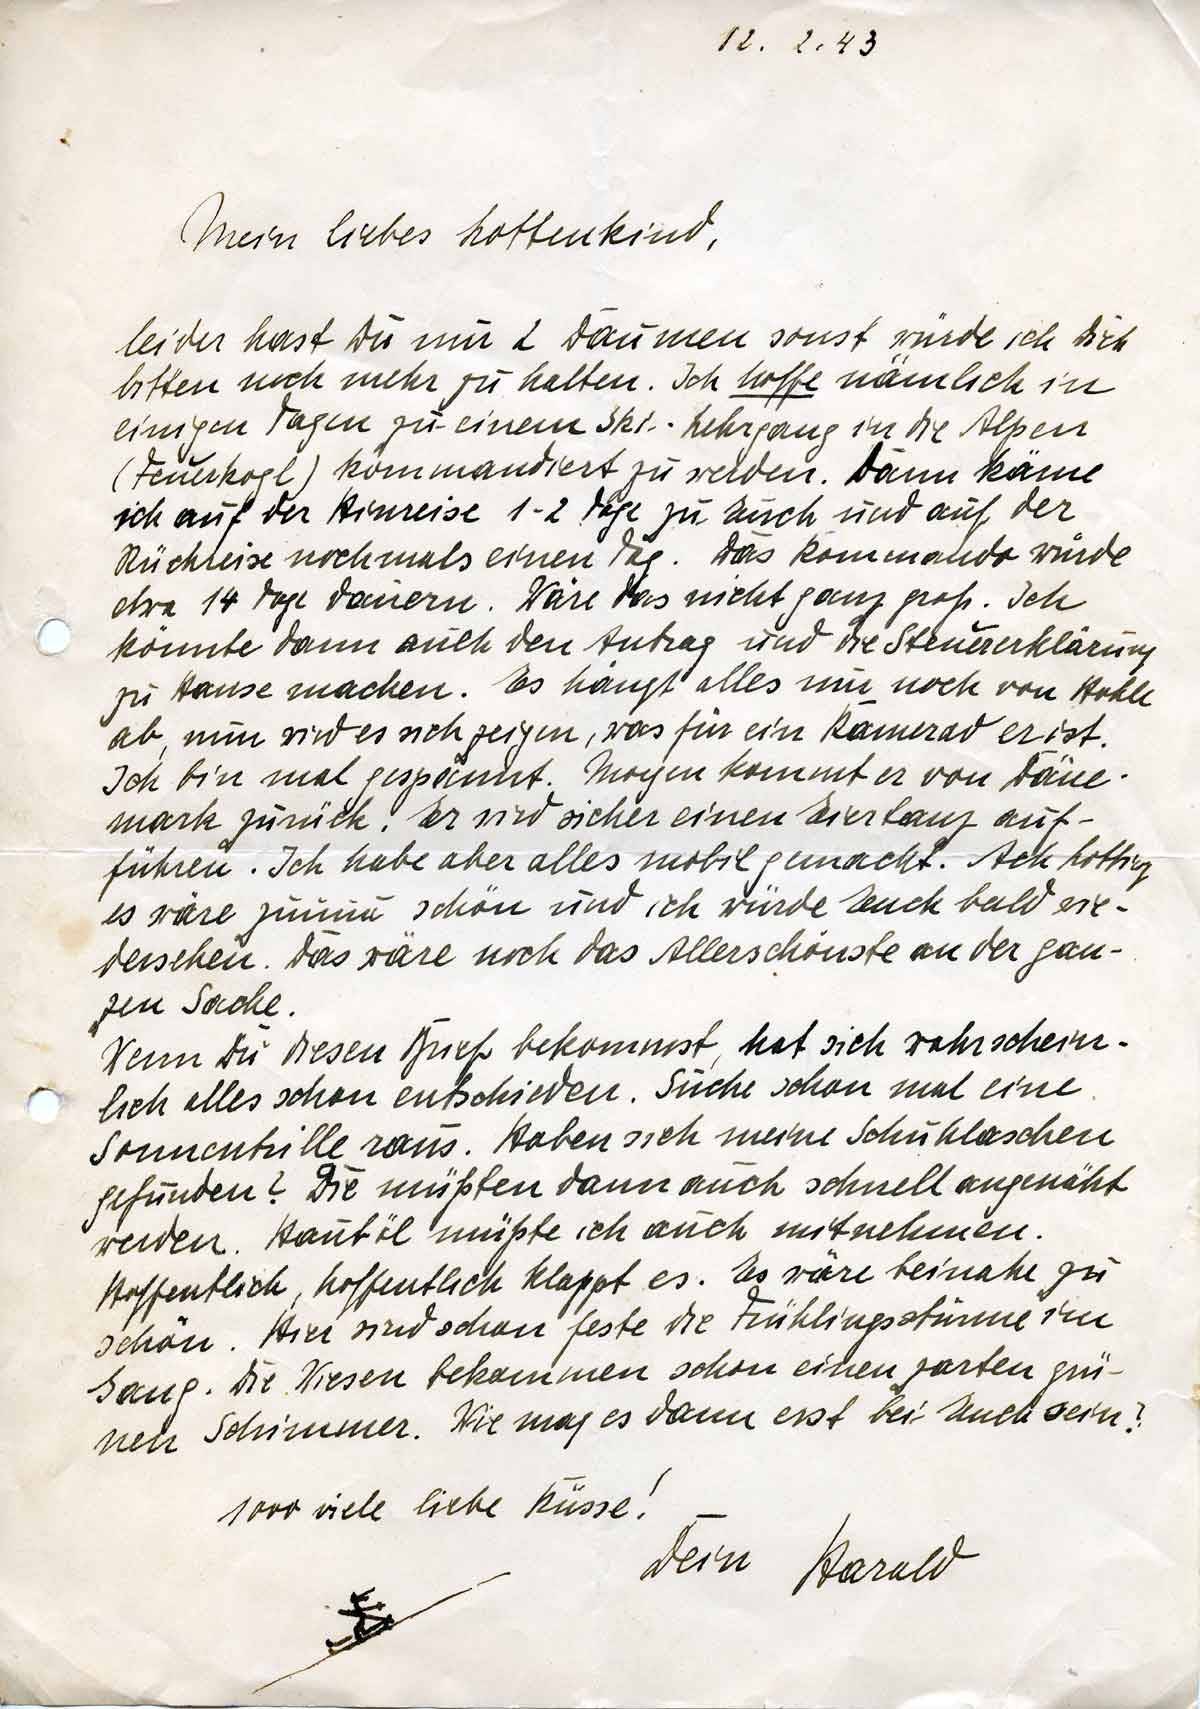 12. 2. 43
Mein liebes Hottenkind,
leider hast Du nur 2 Daumen sonst würde ich Dich
bitten noch mehr zu halten. Ich hoffe nämlich in
einigen Tagen zu einem Ski-Lehrgang in die Alpen
(Feuerkogl) kommandiert zu werden. Dann käme
ich auf der Hinreise 1-2 Tage zu Euch und auf der
Rückreise nochmals einen Tag. Das Kommando würde
etwa 14 Tage dauern. Wäre das nicht ganz groß. Ich
könnte dann auch den Antrag und die Steuererklärung
zu Hause machen. Es hängt alles nur noch von
ab, nun wird es sich zeigen, was für ein Kamerad er ist.
Ich bin mal gespannt. Morgen kommt er von Däne-
mark zurück. Er wird sicher einen Eiertanz auf-
führen. Ich habe aber alles mobil gemacht. Ach
es wäre zuuuu schön und ich würde Euch bald wie-
dersehen. Das wäre noch das Allerschönste an der gan-
zen Sache.
Wenn Du diesen Brief bekommst, hat sich wahrschein-
lich alles schon entschieden. Suche schon mal eine
Sonnenbrille raus. Haben sich meine Schuhlaschen
gefunden? Die müßten dann auch schnell angenäht
werden. Hautöl müßte ich auch mitnehmen.
Hoffentlich, hoffentlich klappt es. Es wäre beinahe zu
schön. Hier sind schon feste die Frühlingsstürme im
Gang. Die Wiesen bekommen schon einen zarten grü-
nen Schimmer. Wie mag es dann erst bei Euch sein?
1000 viele liebe Küsse!
Dein Harald